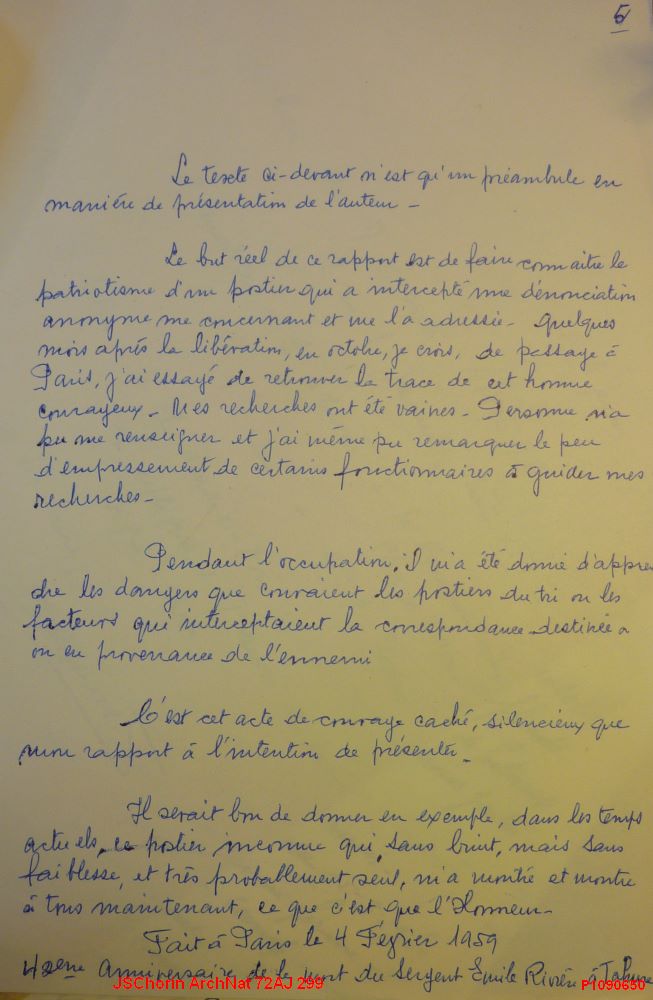 5
Le texte ci-devant n'est qu'un préambule en
maniére de présentation de l'auteur -
Le but réel de ce rapport est de faire connaitre le
patriotisme d'un postier qui a intercepté une dénonciation
anonyme me concernant et me l'a adressée. Quelques
mois aprés la libération, en octobre, je crois, de passage à
Paris, j'ai essayé de retrouver la trace de cet homme
courageux - Mes recherches ont été vaines - Personne n'a
pu me renseigner et j'ai même pu remarquer le peu
d'empressement de certains fonctionnaires à guider mes
recherches -
Pendant l'occupation, il m'a été donné d'appren
dre les dangers que couraient les postiers du tri ou les
facteurs qui interceptaient la correspondance destinée a
ou en provenance de l'ennemi
C'est cet acte de courage caché, silencieux que
mon rapport à l'intention de présenter -
Il serait bon de donner en exemple, dans les temps
actuels, ce postier inconnu qui, sans bruit, mais sans
faiblesse, et très probablement seul, m'a montré et montre
à tous maintenant, ce que c'est que l'Honneur -
Fait à Paris le 4 Février 1959
Anniversaire de la mort du Sergent Emile Rivière à
JSChorin ArchNat 72AJ 299
P1090650